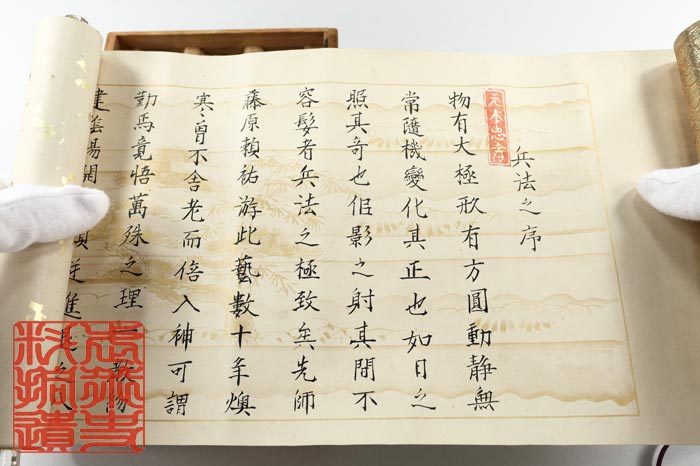 兵法之序
元本忠孝
物有大極形有方圓動静無
常隨機變化其正也如日之
照其奇也佀影之射其間不
容髮者兵法之極致矣先師
藤原頼祐游此藝數十年燠
寒〻曽不舎老而倍入神可謂
勤焉竟悟萬殊之理一致
建陰陽開